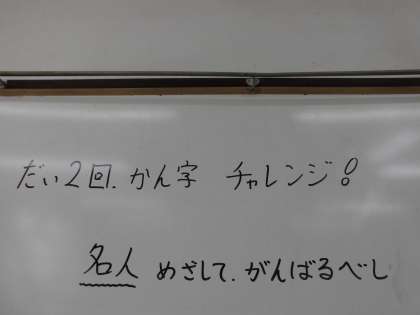 だい2回.かん字 チャレンジ!
名人 めざして.がんばるべし